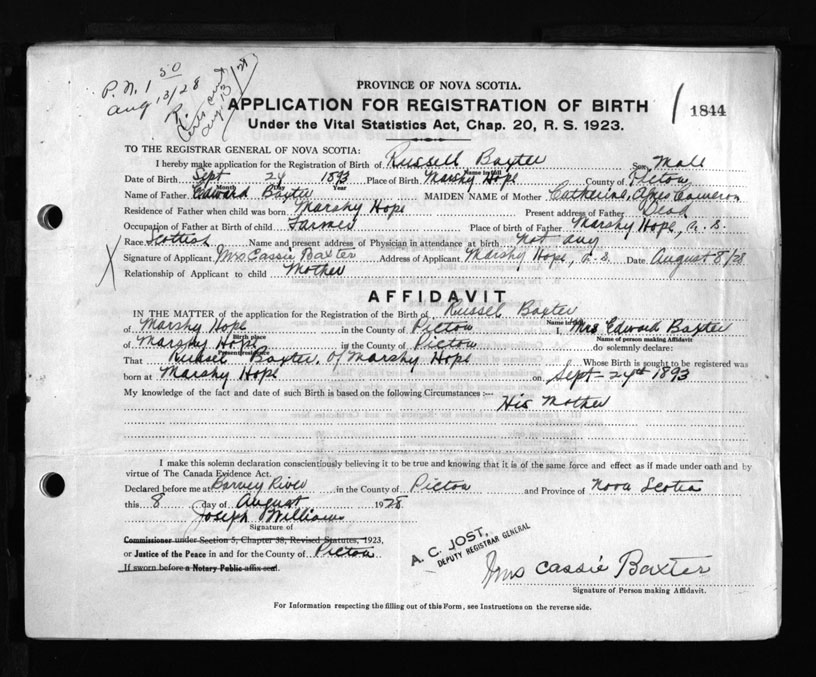 P. N. 1 50
Aug 13/28
Aug 13/28
PROVINCE OF NOVA SCOTIA.
APPLICATION FOR REGISTRATION OF BIRTH
1844
Under the Vital Statistics Act, Chap. 20, R. S. 1923.
TO THE REGISTRAR GENERAL OF NOVA SCOTIA:
I hereby make application for the Registration of Birth of Russell Baxter Sex Male
Name in full
Date of Birth Sept 24 1893 Place of Birth Marshy Hope County of Pictou
Month Day Year
Name of Father Edward Baxter MAIDEN NAME of Mother Catherine Agnes Cameron
Residence of Father when child was born Marshy Hope Present address of Father Dead
Occupation of Father at Birth of child Farmer Place of birth of Father Marshy Hope, N. S.
Race Scottish Name and present address of Physician in attendance at birth not any
Signature of Applicant Mrs Cassie Baxter Address of Applicant Marshy Hope, N. S. Date August 8/28
Relationship of Applicant to child Mother
AFFIDAVIT
IN THE MATTER of the application for the Registration of the Birth of Russel Baxter
Name in full
of Marshy Hope in the County of Pictou I, Mrs Edward Baxter
Birth place Name of person making Affidavit
of Marshy Hope in the County of Pictou do solemnly declare:
Present residence
That Russel Baxter. of Marshy Hope Whose Birth is sought to be registered was
born at Marshy Hope on Sept - 24th 1893
My knowledge of the fact and date of such Birth is based on the following Circumstances :—
His Mother
I make this solemn declaration conscientiously believing it to be true and knowing that it is of the same force and effect as if made under oath and by
virtue of The Canada Evidence Act.
Declared before me at Barney River in the County of Pictou and Province of Nova Scotia
this 8 day of August 1928
Joseph Williams
Signature of
Commissioner under Section 5, Chapter 38, Revised Statutes, 1923,
or Justice of the Peace in and for the County of Pictou
If sworn before a Notary Public affix seal.
A. C. JOST,
DEPUTY REGISTRAR GENERAL
Mrs Cassie Baxter
Signature of Person making Affidavit.
For Information respecting the filling out of this Form, see Instructions on the reverse side.